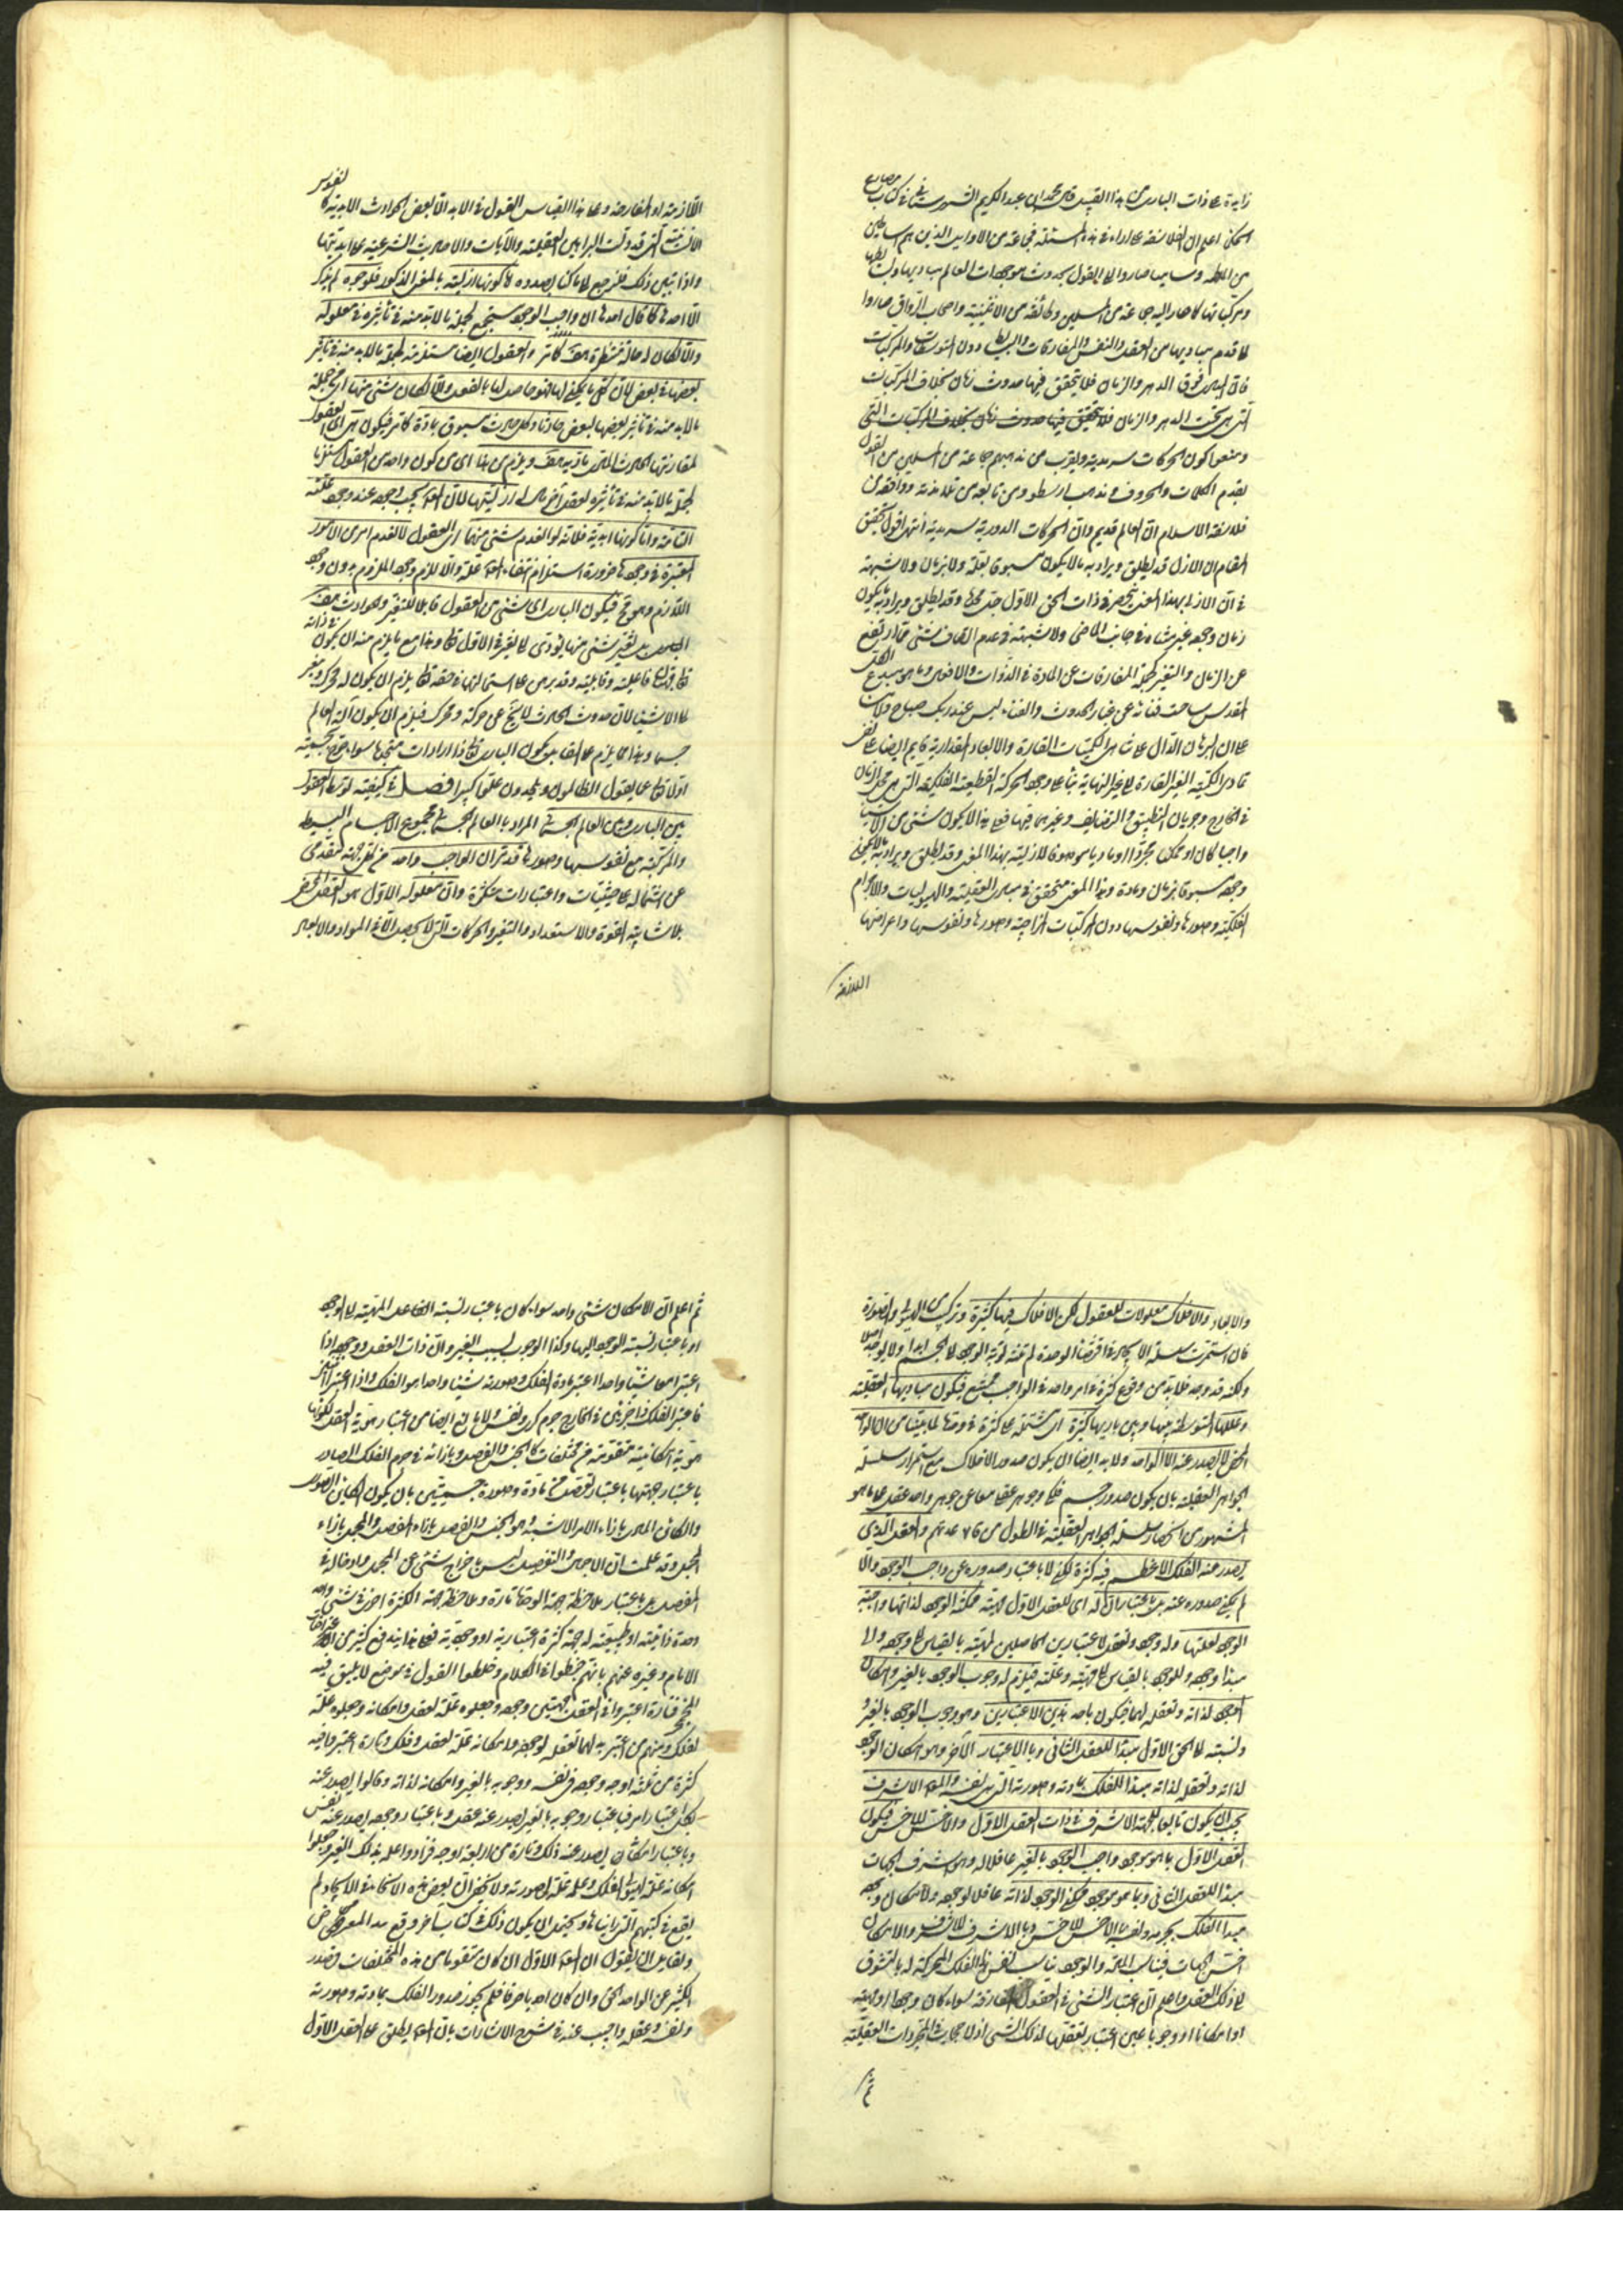 زايدة على ذات البارى من هذا القبيل قال محمد بن عبد الكريم الشهرستانى فى كتاب مصارع
الحكماء اعلم ان الفلاسفه على اراء فى هذه المسئلة فجماعة من الاوايل الذين هم اساطين
من الملطيه وساميا صاروا الى القول بحدوث موجودات العالم مباديها وبسايطها
ومركباتها كما صار اليه جماعة من المسلمين وطائفة من الاثينية واصحاب الرواق صاروا
الى قدم مباديها من العقل والنفس والمفارقات والبسايط دون المتوسطات والمركبات
فان المبادى فوق الدهر والزمان فلا يتحقق فيها حدوث زمان بخلاف المركبات
التى هى تحت الدهر والزمان فلا يتحقق فيها حدوث زمان بخلاف المركبات التى
ومنعوا كون الحركات سرمدية ويقرب من مذهبهم جماعة من المسلمين من القول
بقدم الكلمات والحروف ومذهب ارسطو ومن تابعه من تلامذته ووافقه من
فلاسفة الاسلام ان العالم قديم وان الحركات الدورية سرمدية انتهى اقول تحقيق
المقام ان الازل قد يطلق ويراد به ما لا يكون مسبوقا بعلة ولا بزمان ولا شبهة
فى ان الازلى بهذا المعنى ينحصر فى ذات الحق الاول جل مجده وقد يطلق ويراد به ما يكون
زمان وجوده غير متناه فى جانب الماضى ولا شبهة فى عدم اتصاف شئ مما ارتفع
عن الزمان والتغير كجملة المفارقات عن المادة فى الذوات والافعال وما هو مبدع الكل
المقدس ساحت فنائه عن غبار الحدوث والفناء ليس عند ربك صباح ولا مساء
على ان البرهان الدال على تناهى الكميات القارة والابعاد المقدارية قايم ايضا على نفى
تمادى الكمية الغير القارة الى غير النهاية بناء على وجود الحركة القطعية الفلكية التى هى محل الزمان
فى الخارج وجريان التطبيق والتضايف وغيرهما فيها فعلى هذا لا يكون شئ من الاشياء
واجبا كان او ممكنا مجردا او ماديا موصوفا بالازلية بهذا المعنى وقد يطلق ويراد به ما لا يكون
وجوده مسبوقا بزمان ومادة وهذا المعنى متحقق فى مبادى العقلية والهيوليات والاجرام
الفلكية وصورها ونفوسها دون المركبات المزاجية وصورها ونفوسها واعراضها
اللازمة
اللازمة او المفارقة وعلى هذا القياس القول فى الابد الا بعض الحوادث الابدية كالنفوس
الانسانية التى قد دلت البراهين العقلية والآيات والاحاديث الشرعية على ابديتها
واذا تبين ذلك فلنرجع الى ما كنا بصدده اما كونها ازلية بالمعنى المذكور فلوجوه لم يذكر
الا احدها كما قال احدها ان واجب الوجود مستجمع لجملة ما لا بد منه فى تأثيره فى معلوله
والا لكان له حالة منتظرة هف كما مر والعقول ايضا مستلزمة لجملة ما لا بد منه فى تأثير
بعضها فى بعض لان كل ما يمكن لها فهو حاصل لها بالفعل والا لكان شئ منها اى من جملة
ما لا بد منه فى تأثير بعضها لبعض حادثا وكل حادث مسبوق بمادة كما مر فيكون هى اى العقول
لمقارنتها الحادث المادى مادية هف ويلزم من هذا اى من كون واحد من العقول مستلزما
لجملة ما لا بد منه فى تأثيره لعقل آخر بل ازليتها لان المعلول يجب وجوده عند وجود علته
التامة واما كونها ابدية فلانه لو انعدم شئ منها اى العقول لانعدم امر من الامور
المعتبرة فى وجودها ضرورة استلزام انتفاء المعلول علته والا للزم وجود الملزوم بدون وجود
اللازم وهو مح فيكون البارى اى شئ من العقول قابلا للتغير والحوادث هف
بل تغير شئ منها يؤدى الى تغير فى الاول تعالى وهذا مع ما يلزم منه ان يكون فى ذاته
تعالى قوتان فاعلية وقابلية وقد برهن على استحالتها فى حقه تعالى يلزم ان يكون له محرك ومغير
على الاشياء لان حدوث الحادث لا يخ عن حركة ومحرك فيلزم ان يكون آله العالم
جسما وهذا كما يلزم على القايلين بكون البارى تعالى ذا ارادات متجددة سواء صح بجسميته
اولا تعالى عما يقول الظالمون والملحدون علوا كبيرا فصل فى كيفية توسط العقول
بين البارى وبين العالم الجسمانى المراد بالعالم الجسمانى مجموع الاجسام البسيطة
والمركبة مع نفوسها وصورها قد مر ان الواجب واحد من كل جهة مقدس
عن اشتماله على حيثيات واعتبارات متكثرة وان معلوله الاول هو العقل المحض
بلا شايبة القوة والاستعداد والتغير والحركات التى لا يحصل الا فى المواد والابعاد
والابعاد والافلاك معلولات للعقول لكن الافلاك فيها كثيرة وتركب من الهيولى والصورة
فان استمرت سلسلة الايجاد على اقتضاء الوحدة لم تنته نوبة الوجود الى الجسم ابدا ولا يوجد اصلا
ولكنه قد وجد فلا بد من وقوع كثرة فى امر واحد فى الواجب ممتنع فيكون مباديها العقلية
وعللها المتوسطة بينها وبين باريها كثيرة اى مشتملة على كثرة فى ذوتها لما بينا من ان الواحد
المحض لا يصدر عنه الا الواحد ولا بد ايضا ان يكون صدور الافلاك مع استمرار سلسلة
الجواهر العقلية بان يكون صدور جسم فلكى وجوهر عقلى معا عن جوهر واحد عقلى على ما هو
المشهور من انحصار سلسلة الجواهر العقلية فى الطول من قاعدتهم والعقل الذى
يصدر عنه الفلك الاعظم فيه كثرة لكن لا باعتبار صدوره عن واجب الوجود والا
لم يكن صدوره عنه بل باعتبار ان له اى للعقل الاول ماهية ممكنة الوجود لذاتها واجبة
الوجود لعلتها وله وجود وتعقل لاعتبارين الحاصلين لماهيته بالقياس الى وجوده والى
مبدأ وجوده وللوجود بالقياس الى ماهيته وعلته فيلزم له وجوب الوجود بالغير وامكان
الوجود لذاته وتعقله لهما فيكون باحد هذين الاعتبارين وهو وجوب الوجود بالغير
ونسبته الى الحق الاول مبدأ للعقل الثانى وبالاعتبار الآخر وهو امكان الوجود
لذاته وتعقل لذاته مبدأ للفلك بمادته وصورته التى هى نفسه والمعلول الاشرف
يجب ان يكون تابعا للجهة الاشرف فى ذات العقل الاول والاخس للاخس فيكون
العقل الاول بما هو موجود واجب الوجود بالغير عاقلا له وهو اشرف الجهات
مبدأ للعقل الثانى وبما هو موجود ممكن الوجود لذاته عاقلا لوجوده ولامكان وجوده
مبدأ الفلك بجرمه ونفسه الاخس للاخس وبالاشرف للاشرف والامكان
اخس الجهات فيناسب المادة والوجود يناسب نفس الفلك المحركة له بالتشوق
الى ذلك العقل واعلم ان اعتبار الشئ فى العقول المفارقة سواء كان وجودا او ماهية
او امكانا او وجوبا عين اعتبار تعقلها لذلك الشئ اذ لا حجاب فى المجردات العقلية
ثم
ثم اعلم ان الامكان شئ واحد سواء كان باعتبار نسبة الفاعل الماهية الى الوجود
او باعتبار نسبة الوجود اليها وكذا الوجوب بسبب الغير وان ذات العقل ووجوده اذا
اعتبرا معا شيئا واحدا اعتبر مادة الفلك وصورته شيئا واحدا هو الفلك واذا اعتبر اثنين
فاعتبر الفلك ذا جزئين فى الخارج جرم كرى ونفس ولا مانع ايضا من اعتبار هوية العقل لكونها
هوية امكانية متقومة من مختلفات كالجنس والفصل وبازائه فى جرم الفلك الصادر
باعتبار جهتها باعتبار تقضى من مادة وصورة جسميتين بان يكون الكاين الصورى
والكاين المادى بازاء الامر الاشبه وهو الجنس والفصل بازاء الفصل والمجمل بازاء
المجمل وقد علمت ان الاجمال والتفصيل ليس باخراج شئ عن المجمل وادخاله فى
المفصل بل باعتبار ملاحظة جهة الوحدة تارة وملاحظة جهة الكثرة اخرى فى شئ واحد
وحدة ذاتية او طبيعية له جهة كثرة اعتبارية او وجودية فعلى هذا يندفع كثير من اعتراضات
الامام وغيره عنهم بانهم خبطوا فى الكلام وخلطوا القول فى موضع لا يليق فيه
المجمج فتارة اعتبروا فى العقل جهتين وجوده وجعلوه علة لعقل وامكانه وجعلوه علة
لفلك ومنهم من اعتبر بدلهما تعقله لوجوده وامكانه علة لعقل وفلك وتارة اعتبروا فيه
كثرة من ثلثة اوجه وجوده فى نفسه ووجوبه بالغير وامكانه لذاته وقالوا يصدر عنه
بكل اعتبار امر فباعتبار وجوبه بالغير يصدر عنه عقل وباعتبار وجوده يصدر عنه نفس
وباعتبار امكانه يصدر عنه فلك وتارة من اربعة اوجه فزادوا علمه بذلك الغير وجعلوا
امكانه علة لهيولى الفلك وعلمه علة لصورته ولا يخفى ان بعض هذه الانحاء فى الايجاد لم
يقع فى كتبهم التى رايناها ويحتمل ان يكون ذلك فى كتاب آخر وقع بيد المعترض
ولقايل ان يقول ان العقل الاول ان كان متقوما من هذه المختلفات فصدر
الكثير عن الواحد الحق وان كان احديا صرفا فلم يجوز صدور الفلك بمادته وصورته
ونفسه وعقله واجيب عنه فى شرح الاشارات بان العقل يطلق على العقل الاول